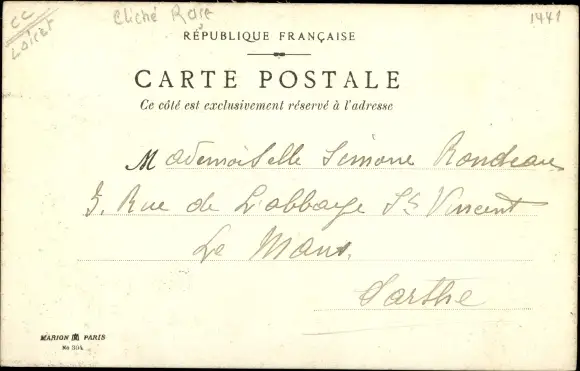 CC
Loiret
Cliché Rare
1441
RÉPUBLIQUE FRANÇAISE
CARTE POSTALE
Ce côté est exclusivement réservé à l'adresse
Mademoiselle Simone Rondeau
3, Rue de L'abbaye St Vincent
Le Mans
Sarthe
MARION PARIS
No 304